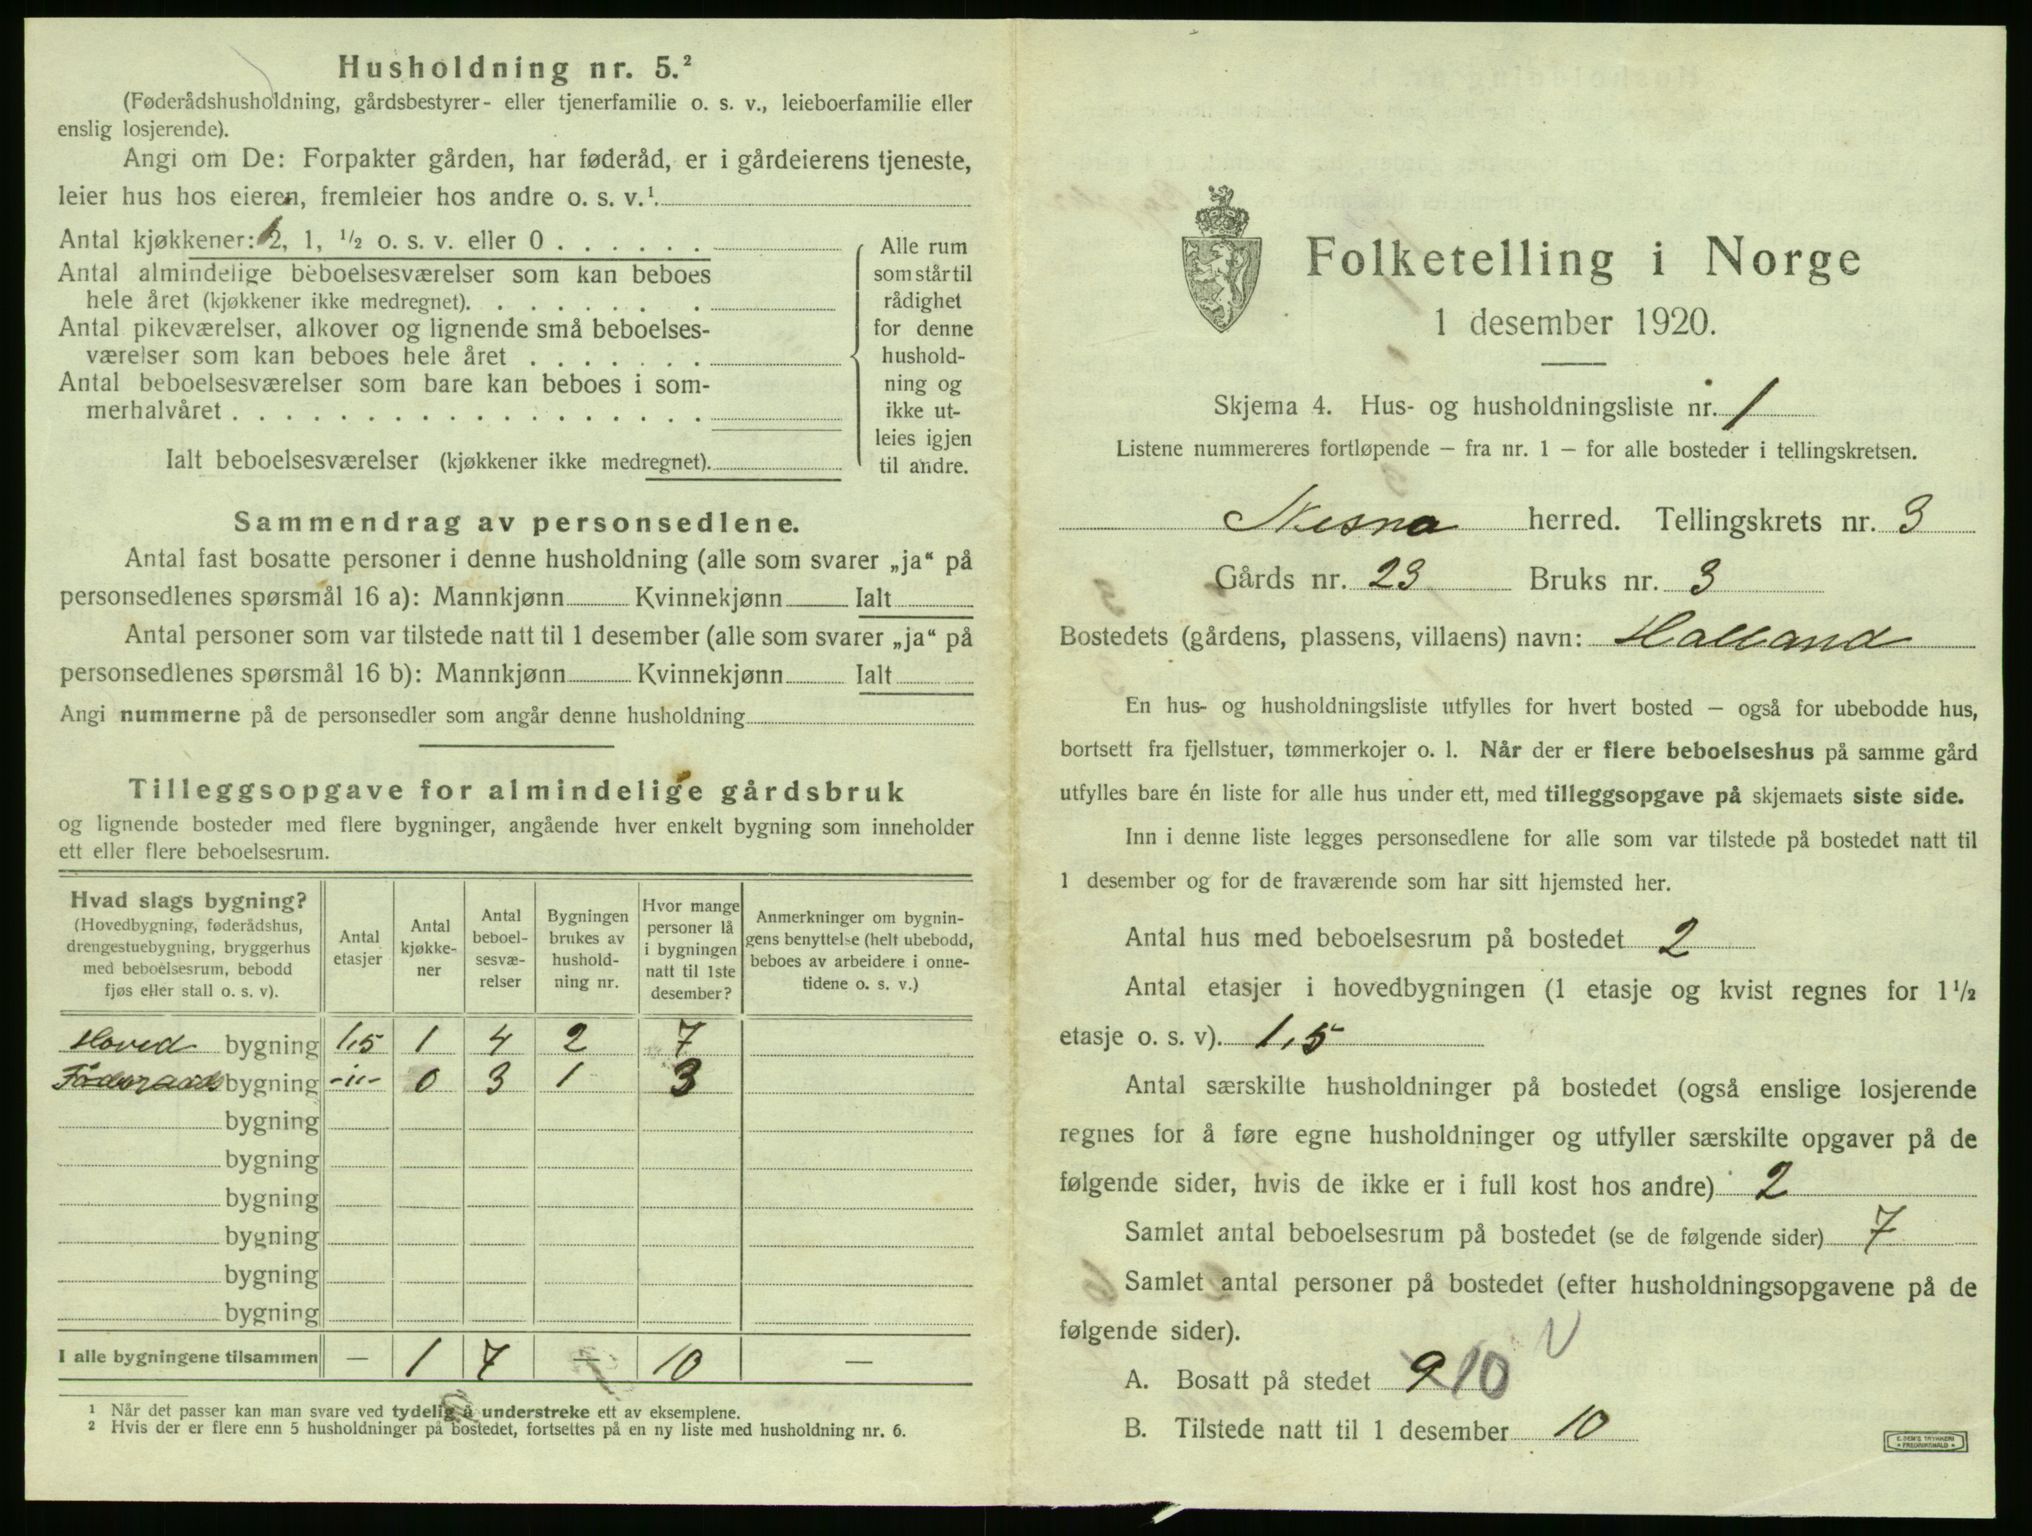 Husholdning nr. 5.²
(Føderådshusholdning, gårdsbestyrer- eller tjenerfamilie o. s. v., leieboerfamilie eller
enslig losjerende).
Angi om De: Forpakter gården, har føderåd, er i gårdeierens tjeneste,
leier hus hos eieren, fremleier hos andre o. s. v.¹
Antal kjøkkener: 2, 1, ½ o. s. v. eller 0
Antal almindelige beboelsesværelser som kan beboes
hele året (kjøkkener ikke medregnet).
Antal pikeværelser, alkover og lignende små beboelses-
værelser som kan beboes hele året
Antal beboelsesværelser som bare kan beboes i som-
merhalvåret
Ialt beboelsesværelser (kjøkkener ikke medregnet).
Alle rum
som står til
rådighet
for denne
hushold-
ning og
ikke ut-
leies igjen
til andre.
Sammendrag av personsedlene.
Antal fast bosatte personer i denne husholdning (alle som svarer „ja“ på
personsedlenes spørsmål 16 a): Mannkjønn Kvinnekjønn Ialt
Antal personer som var tilstede natt til 1 desember (alle som svarer „ja“ på
personsedlenes spørsmål 16 b): Mannkjønn Kvinnekjønn Ialt
Angi nummerne på de personsedler som angår denne husholdning
Tilleggsopgave for almindelige gårdsbruk
og lignende bosteder med flere bygninger, angående hver enkelt bygning som inneholder
ett eller flere beboelsesrum.
Hvad slags bygning?
(Hovedbygning, føderådshus,
drengestuebygning, bryggerhus
med beboelsesrum, bebodd
fjøs eller stall o. s. v).
Antal
etasjer
Antal
kjøkke-
ner
Antal
beboel-
sesvæ-
relser
Bygningen
brukes av
hushold-
ning nr.
Hvor mange
personer lå
i bygningen
natt til 1ste
desember?
Anmerkninger om bygnin-
gens benyttelse (helt ubebodd,
beboes av arbeidere i onne-
tidene o. s. v.)
Hoved bygning 1,5 1 4 2 7
Föderaads bygning -"- 0 3 1 3
bygning
bygning
bygning
bygning
bygning
bygning
I alle bygningene tilsammen — 1 7 — 10 —
¹ Når det passer kan man svare ved tydelig å understreke ett av eksemplene.
² Hvis der er flere enn 5 husholdninger på bostedet, fortsettes på en ny liste med husholdning nr. 6.
Folketelling i Norge
1 desember 1920.
Skjema 4. Hus- og husholdningsliste nr. 1
Listene nummereres fortløpende — fra nr. 1 — for alle bosteder i tellingskretsen.
Nesna herred. Tellingskrets nr. 3
Gårds nr. 23 Bruks nr. 3
Bostedets (gårdens, plassens, villaens) navn: Halland
En hus- og husholdningsliste utfylles for hvert bosted — også for ubebodde hus,
bortsett fra fjellstuer, tømmerkojer o. l. Når der er flere beboelseshus på samme gård
utfylles bare én liste for alle hus under ett, med tilleggsopgave på skjemaets siste side.
Inn i denne liste legges personsedlene for alle som var tilstede på bostedet natt til
1 desember og for de fraværende som har sitt hjemsted her.
Antal hus med beboelsesrum på bostedet 2
Antal etasjer i hovedbygningen (1 etasje og kvist regnes for 1½
etasje o. s. v). 1,5
Antal særskilte husholdninger på bostedet (også enslige losjerende
regnes for å føre egne husholdninger og utfyller særskilte opgaver på de
følgende sider, hvis de ikke er i full kost hos andre) 2
Samlet antal beboelsesrum på bostedet (se de følgende sider) 7
Samlet antal personer på bostedet (efter husholdningsopgavene på de
følgende sider).
A. Bosatt på stedet 9 10
B. Tilstede natt til 1 desember 10